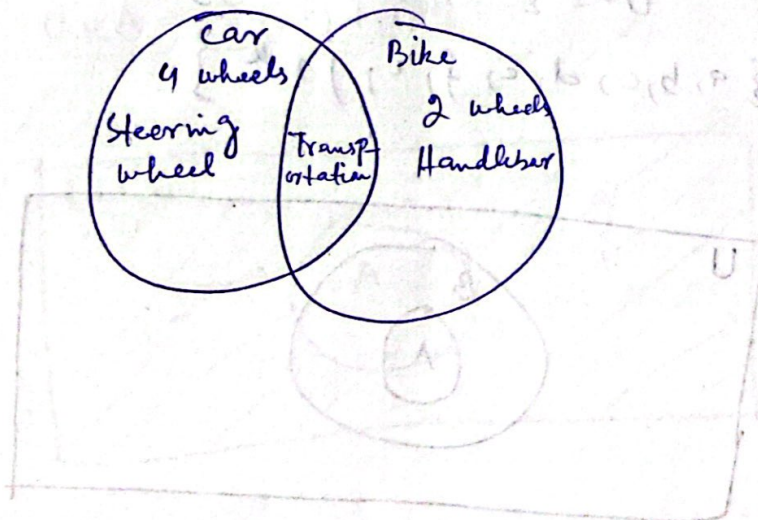 Car
4 wheels
Steering
wheel
Transp-
ortation
Bike
2 wheels
Handlebar
U
A
B
A